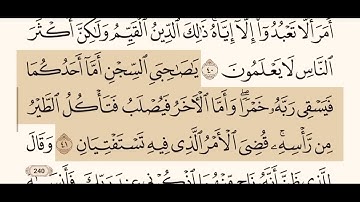 أَمَرَ أَلَّا تَعْبُدُوٓا۟ إِلَّآ إِيَّاهُ ذَٰلِكَ ٱلدِّينُ ٱلْقَيِّمُ وَلَٰكِنَّ أَكْثَرَ
ٱلنَّاسِ لَا يَعْلَمُونَ ٤٠ يَٰصَٰحِبَىِ ٱلسِّجْنِ أَمَّآ أَحَدُكُمَا
فَيَسْقِى رَبَّهُۥ خَمْرًا ۖ وَأَمَّا ٱلْءَاخَرُ فَيُصْلَبُ فَتَأْكُلُ ٱلطَّيْرُ
مِن رَّأْسِهِۦ ۚ قُضِىَ ٱلْأَمْرُ ٱلَّذِى فِيهِ تَسْتَفْتِيَانِ ٤١ وَقَالَ
240